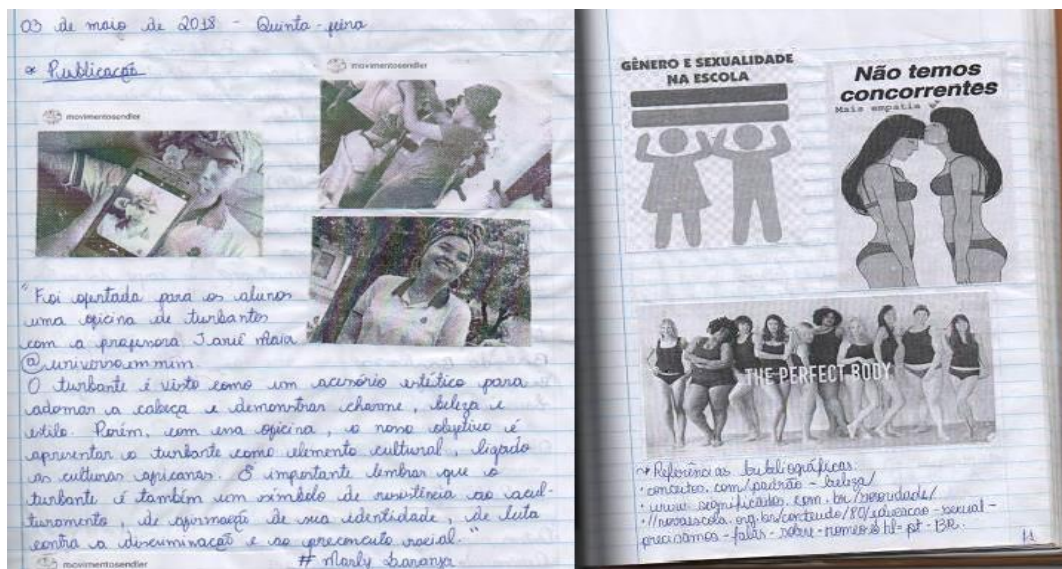 03 de maio de 2018 - Quinta-feira
* Publicação
movimentosendler
movimentosendler
"Foi ofertada para os alunos
uma oficina de turbantes
com a professora Maia
@universoemmim.
O turbante é visto como um acessório estético para
adornar a cabeça e demonstrar charme, beleza e
estilo. Porém, com essa oficina, o nosso objetivo é
apresentar o turbante como elemento cultural, ligado
as culturas africanas. É importante lembrar que o
turbante é também um símbolo de resistência ao acul-
turamento, de afirmação de sua identidade, de luta
contra a discriminação e ao preconceito racial."
# Marly
movimentosendler
GÊNERO E SEXUALIDADE
NA ESCOLA
Não temos
concorrentes
Mais empatia
THE PERFECT BODY
Referências bibliográficas:
• conceitos.com/padrão-beleza/
• www.significados.com.br/sororidade/
• //novaescola.org.br/conteudo/80/educacao-sexual-
precisamos-falar-sobre-romeo hl=pt-BR.